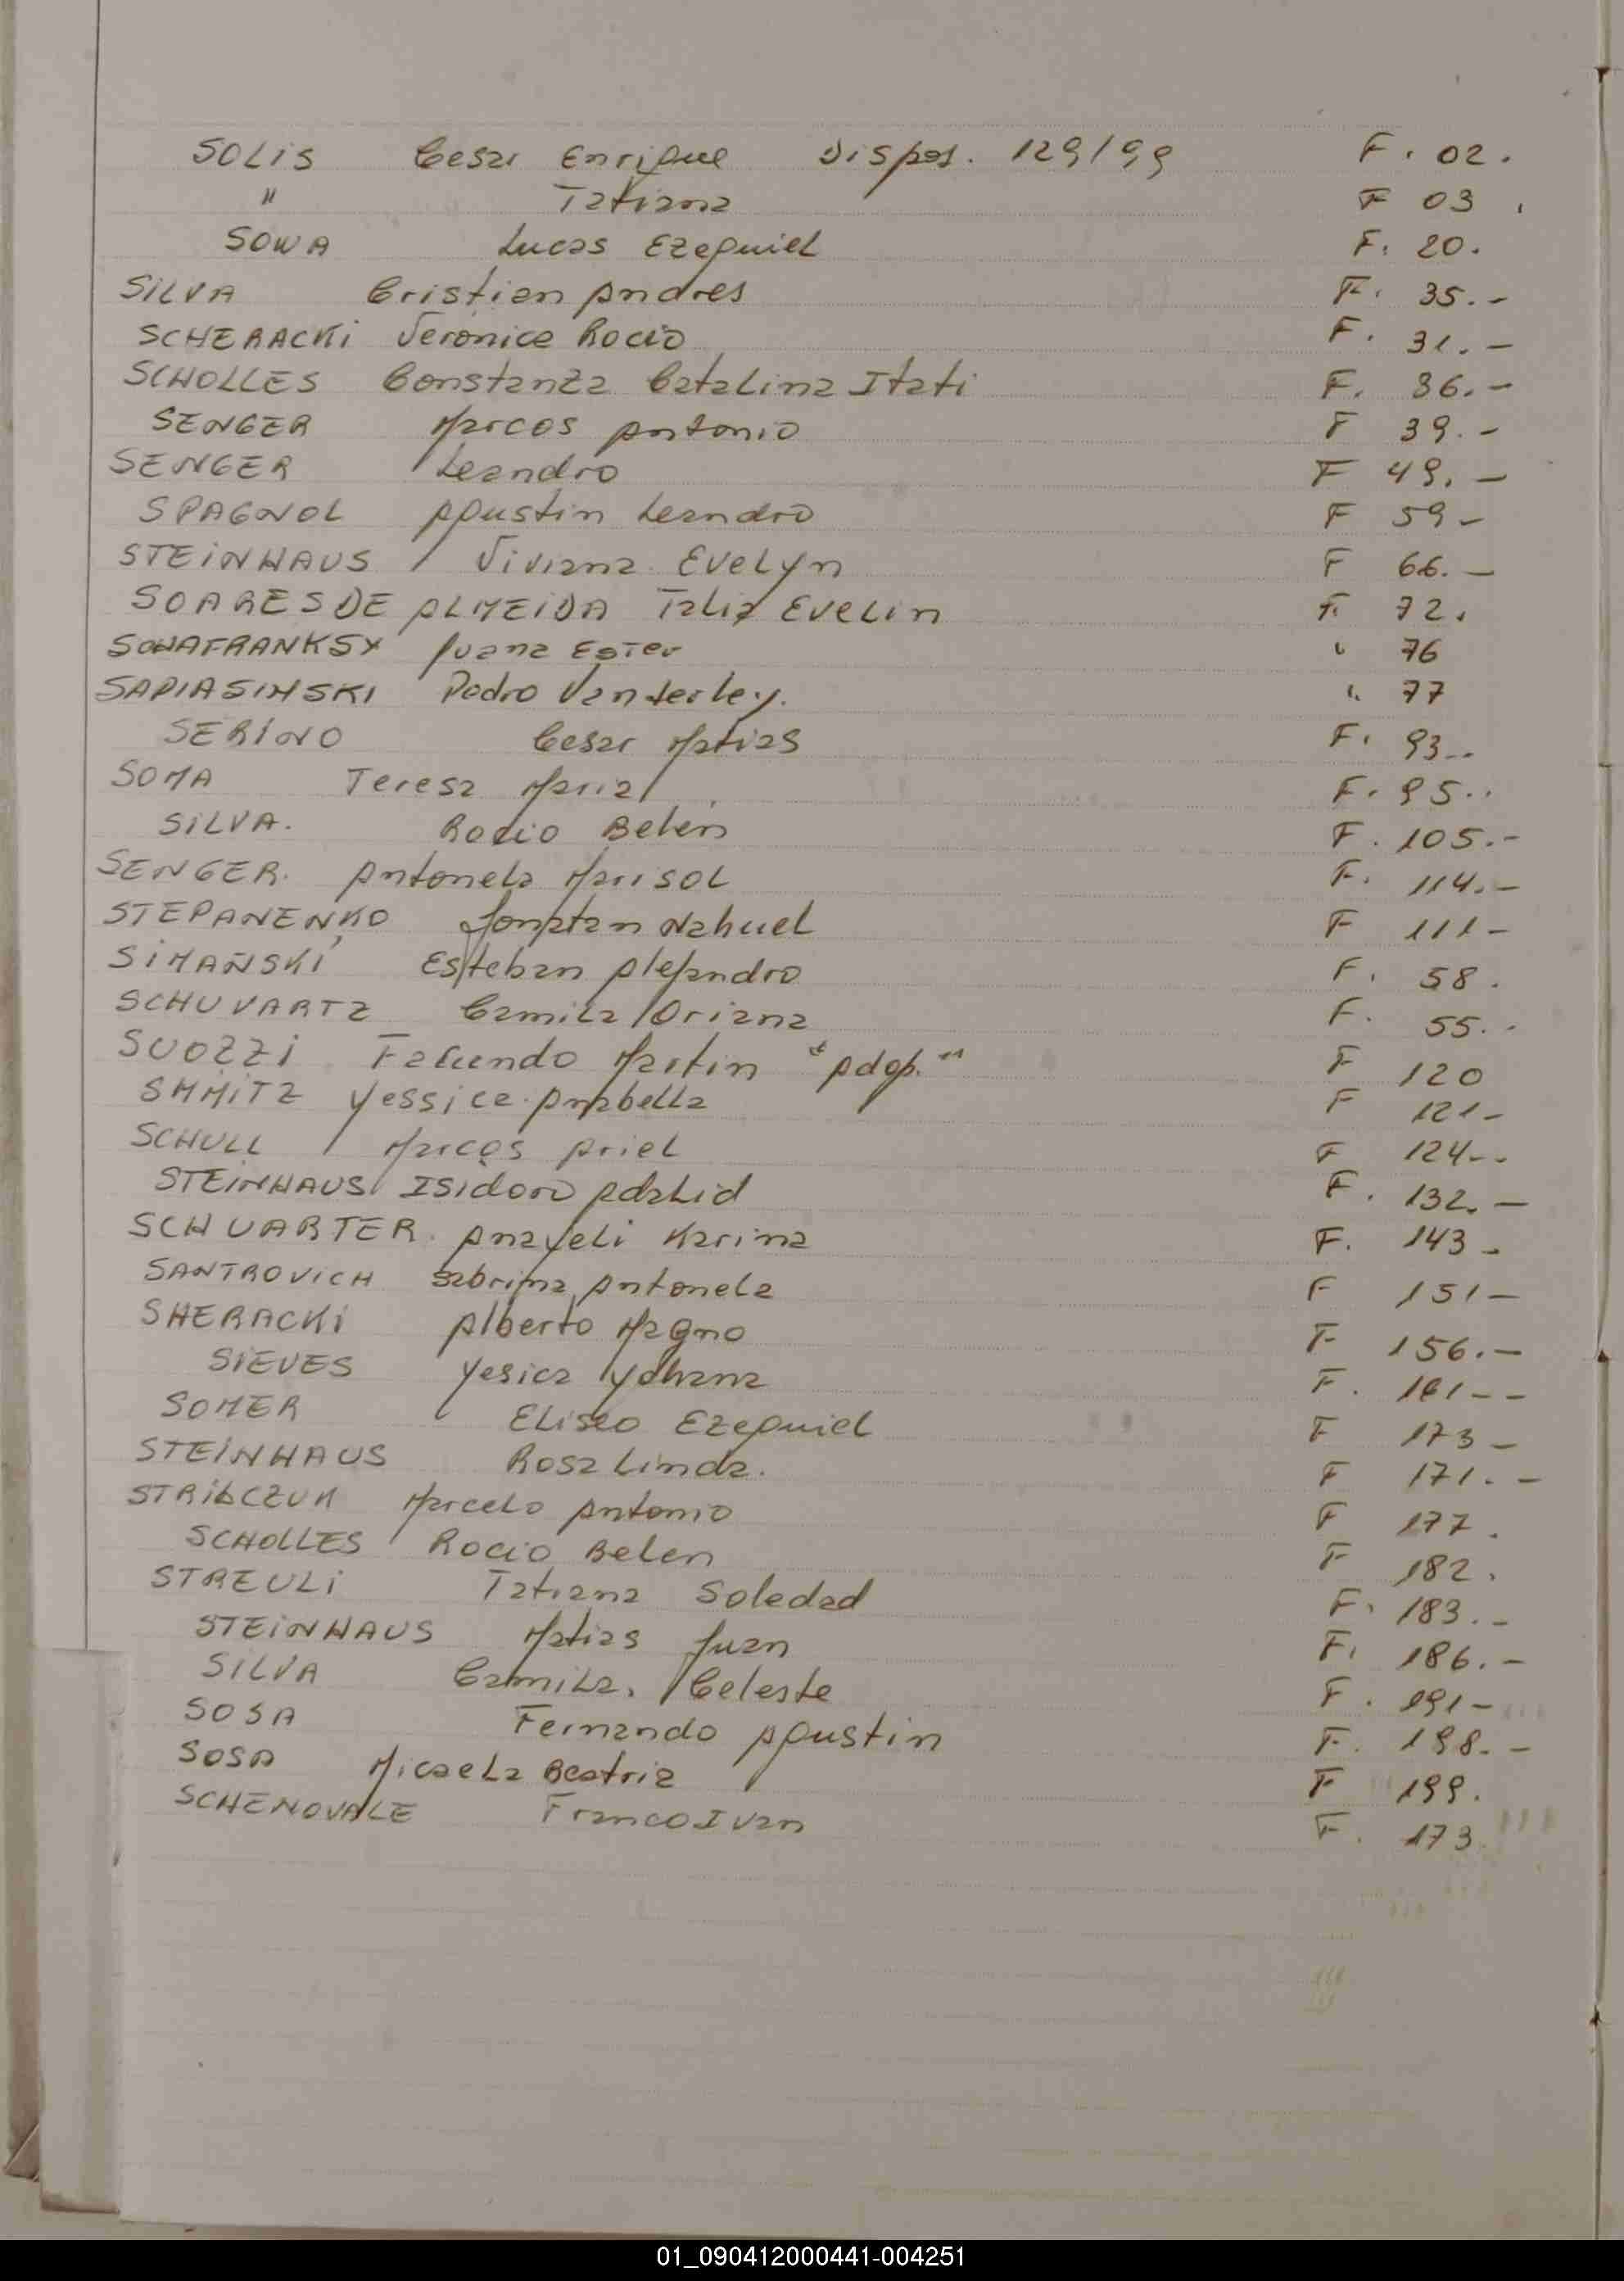 SOLIS Cesar Enrique Dispos. 129/99 F. 02.
" Tatiana F 03
SOWA Lucas Ezequiel F. 20.
SILVA Cristian Andres F. 35.-
SCHERACKI Veronica Rocio F. 31.-
SCHOLLES Constanza Catalina Itati F. 36.-
SENGER Marcos Antonio F 39.-
SENGER Leandro F 49.-
SPAGNOL Agustin Leandro F 59-
STEINHAUS Viviana Evelyn F 66.-
SOARES DE ALMEIDA Talia Evelin F. 72.
SOWAFRANKSY Juana Ester " 76
SAPIASINSKI Pedro Vanterley. " 77
SERINO Cesar Matias F. 93..
SOMA Teresa Maria F. 95..
SILVA. Rocio Belen F. 105.-
SENGER. Antonela Marisol F. 114.-
STEPANENKO Jonatan Nahuel F 111-
SIMAÑSKI Esteban Alejandro F. 58.
SCHUVARTZ Camila Oriana F. 55..
SUOZZI Facundo Martin "Adop." F 120
SMMITZ Yessica Anabella F 121-
SCHULL Marcos Ariel F 124--
STEINHAUS Isidoro Adalid F. 132.-
SCHUARTER. Anayeli Karina F. 143-
SANTROVICH Sabrina Antonela F 151-
SHERACKI Alberto Magno F 156.-
SIEVES Yesica Yohana F. 161--
SOMER Eliseo Ezequiel F 173-
STEINHAUS Rosa Linda. F 171.-
Marcelo Antonio F 177.
SCHOLLES Rocio Belen F 182.
STREULI Tatiana Soledad F. 183.-
STEINHAUS Matias Juan F. 186.-
SILVA Camila. Celeste F. 191-
SOSA Fernando Agustin F. 198.-
SOSA Micaela Beatriz F 199.
SCHENOVALE Franco Ivan F. 173
01_090412000441-004251